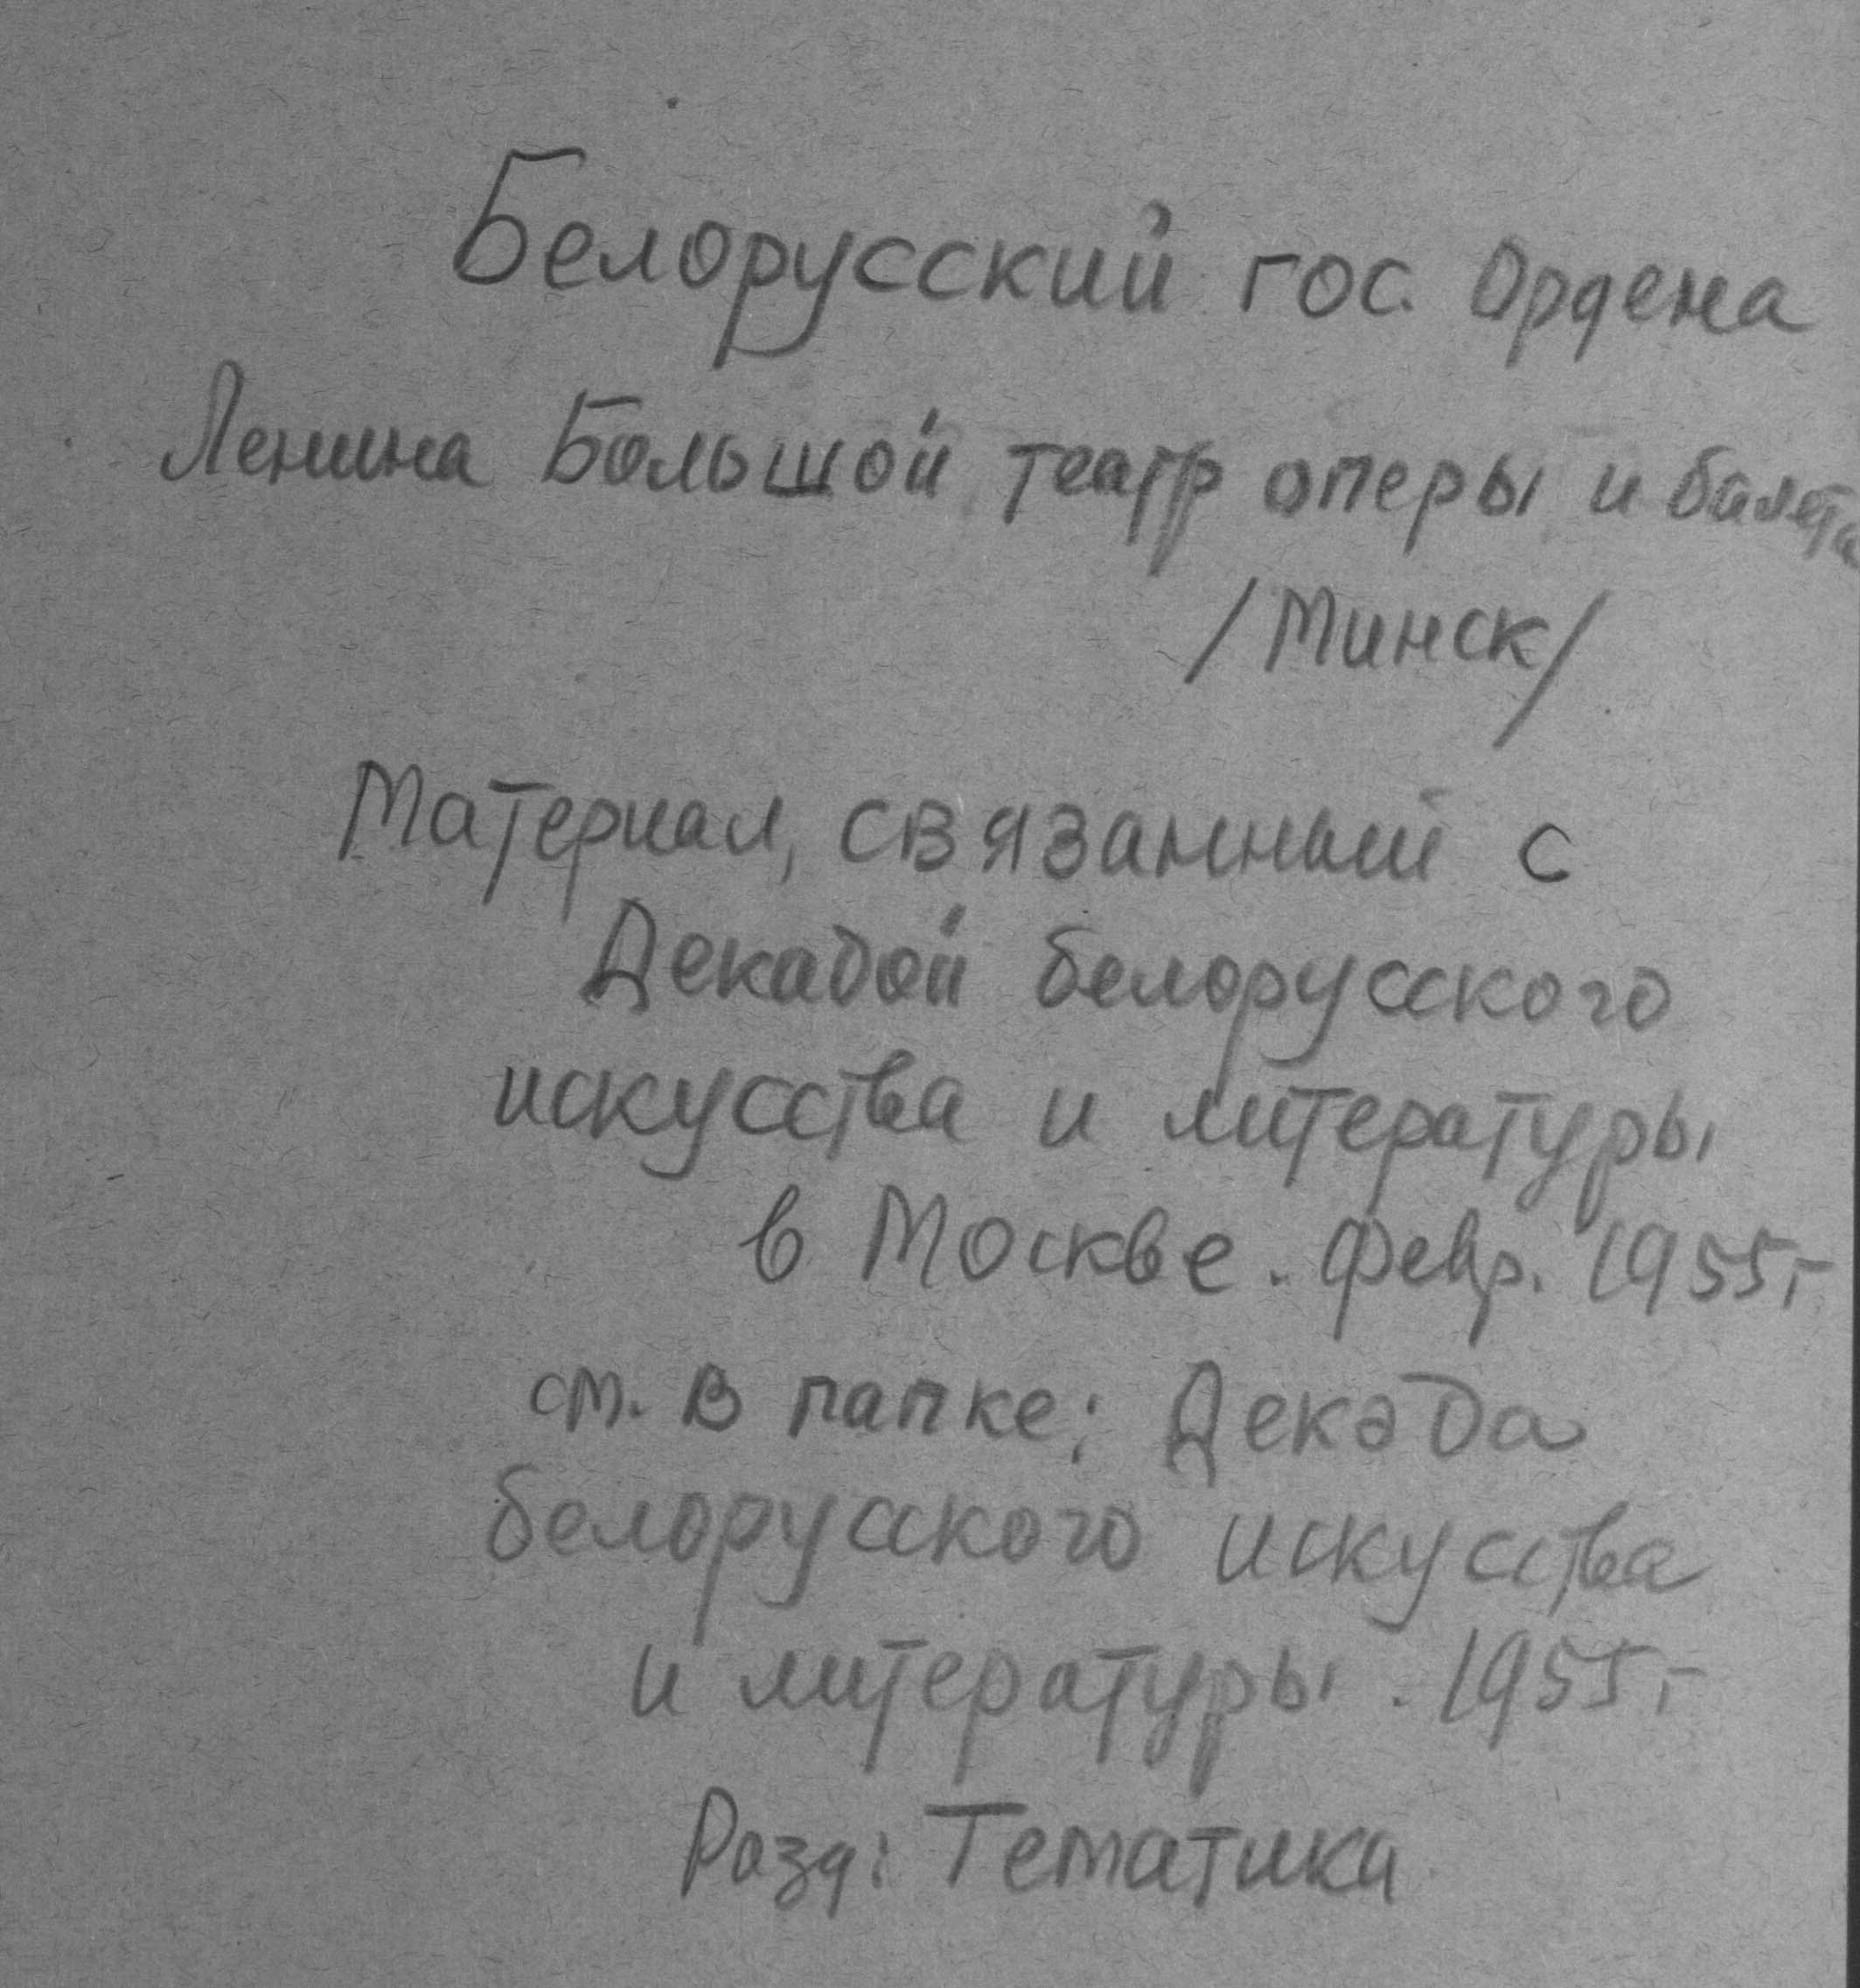 Белорусский гос. Ордена
Ленина Большой театр оперы и балета
/Минск/
Материал, связанный с
Декадой белорусского
искусства и литературы
в Москве. февр. 1955г
см. в папке: Декада
белорусского искусства
и литературы. 1955г
Разд: Тематика